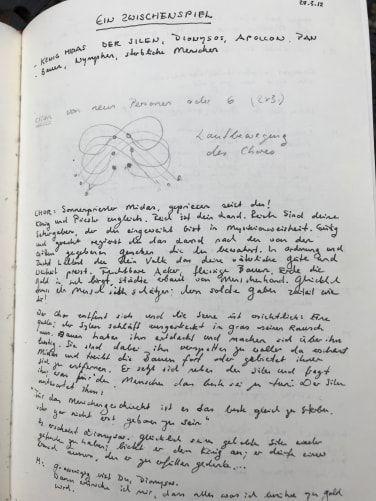 28.5.12
EIN ZWISCHENSPIEL
- KÖNIG MIDAS DER SILEN, DIONYSOS, APOLLON, PAN
- Bauern, Nymphen, sterbliche Menschen
von neun Personen oder 6 (2x3)
Laufbewegung
des Chores
CHOR: Sonnenpriester Midas, gepriesen seist du!
König und Priester zugleich. Reich ist dein Land. Reich sind deine
der du eingeweiht bist in Mysterienweisheit. Gütig
und gerecht regierst du das Land nach den von den
gegebenen Gesetzen die du bewahrst. In Ordnung und
dein Volk das deine väterliche Güte und
preist. Fruchtbare Äcker, fleissige Bauern, Erde die
Gold in sich birgt, Städte erbaut von Menschenhand. Glücklich
der Mensch sich schätzen dem solche Gaben zuteil
Der Chor entfernt sich und die Szene ist
der Sylen schläft ausgestreckt im Gras seinen Rausch
aus. Bauern haben ihn entdeckt und machen sich über ihn
lustig. Sie sind dabei ihn da erscheint
Midas und treibt die Bauern fort oder gebietet ihnen
sich zu entfernen. Er setzt sich neben den Silen und fragt
ihn, was für den Menschen das beste sei zu tun. Der Silen
antwortet ihm:
"Für das Menschengeschlecht ist es das beste gleich zu sterben,
oder gar nicht erst geboren zu sein"
Es erscheint Dionysos. Glücklich seinen Silen wieder
gefunden zu haben, bietet er dem König an, er dürfe einen
nennen, den er zu erfüllen gedenke...
M: Grosszügig bist Du, Dionysos.
Dann wünsche ich mir, dass alles was ich berühre zu Gold
wird.